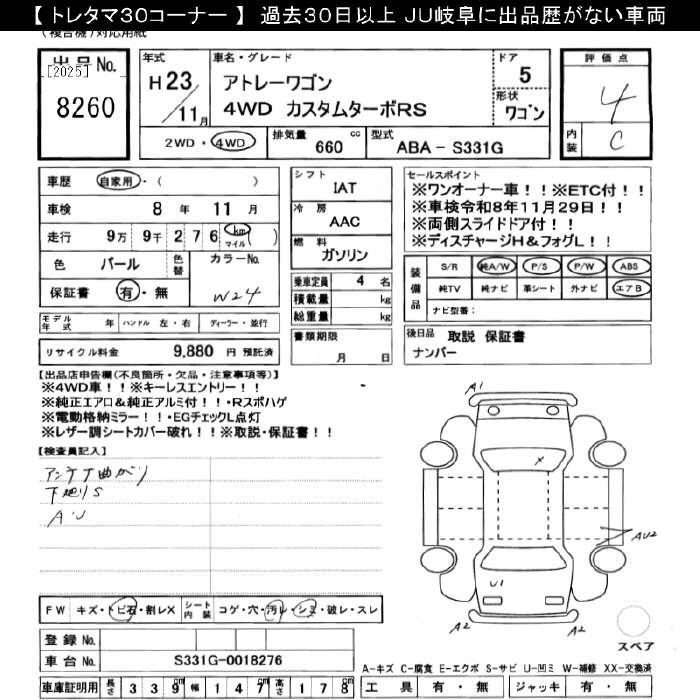 【 トレタマ30コーナー 】 過去30日以上 JU岐阜に出品歴がない車両
(複合機)対応用紙
出品No.
[2025]
8260
年式
H23
11月
車名・グレード
アトレーワゴン
4WD カスタムターボRS
ドア
5
形状
ワゴン
評価点
4
内装
C
2WD・4WD
排気量
660 cc
型式
ABA-S331G
車歴 自家用・( )
車検 8年 11月
走行 9万 9千 276 km マイル ( )
色 パール 色替 カラーNo.
保証書 有・無 W24
シフト
IAT
冷房
AAC
燃料
ガソリン
乗車定員 4 名
積載量 kg
総重量 kg
書類期限
月 日
セールスポイント
※ワンオーナー車!!※ETC付!!
※車検令和8年11月29日!!
※両側スライドドア付!!
※ディスチャージH&フォグL!!
装備品
S/R 純A/W P/S P/W ABS
純TV 純ナビ 革シート 外ナビ エアB
ナビ型番:
モデル年式 年 ハンドル 左・右 ディーラー・並行
リサイクル料金 9,880 円 預託済
後日品 取説 保証書
ナンバー
【出品店申告欄(不良箇所・欠品・注意事項等)】
※4WD車!!※キーレスエントリー!!
※純正エアロ&純正アルミ付!!・Rスポハゲ
※電動格納ミラー!!・EGチェックL点灯
※レザー調シートカバー破れ!!※取説・保証書!!
【検査員記入】
アンテナ曲がり
下廻りS
AU
A1
X
AU2
U1
A2
A2
スペア
FW キズ・トビ石・割レX シート内装 コゲ・穴・汚レ・シミ・破レ・スレ
登録No.
車台No. S331G-0018276
A-キズ C-腐食 E-エクボ S-サビ U-凹ミ W-補修 XX-交換済
車庫証明用 長さ 339cm 幅 147cm 高さ 178cm
工具 有・無 ジャッキ 有・無